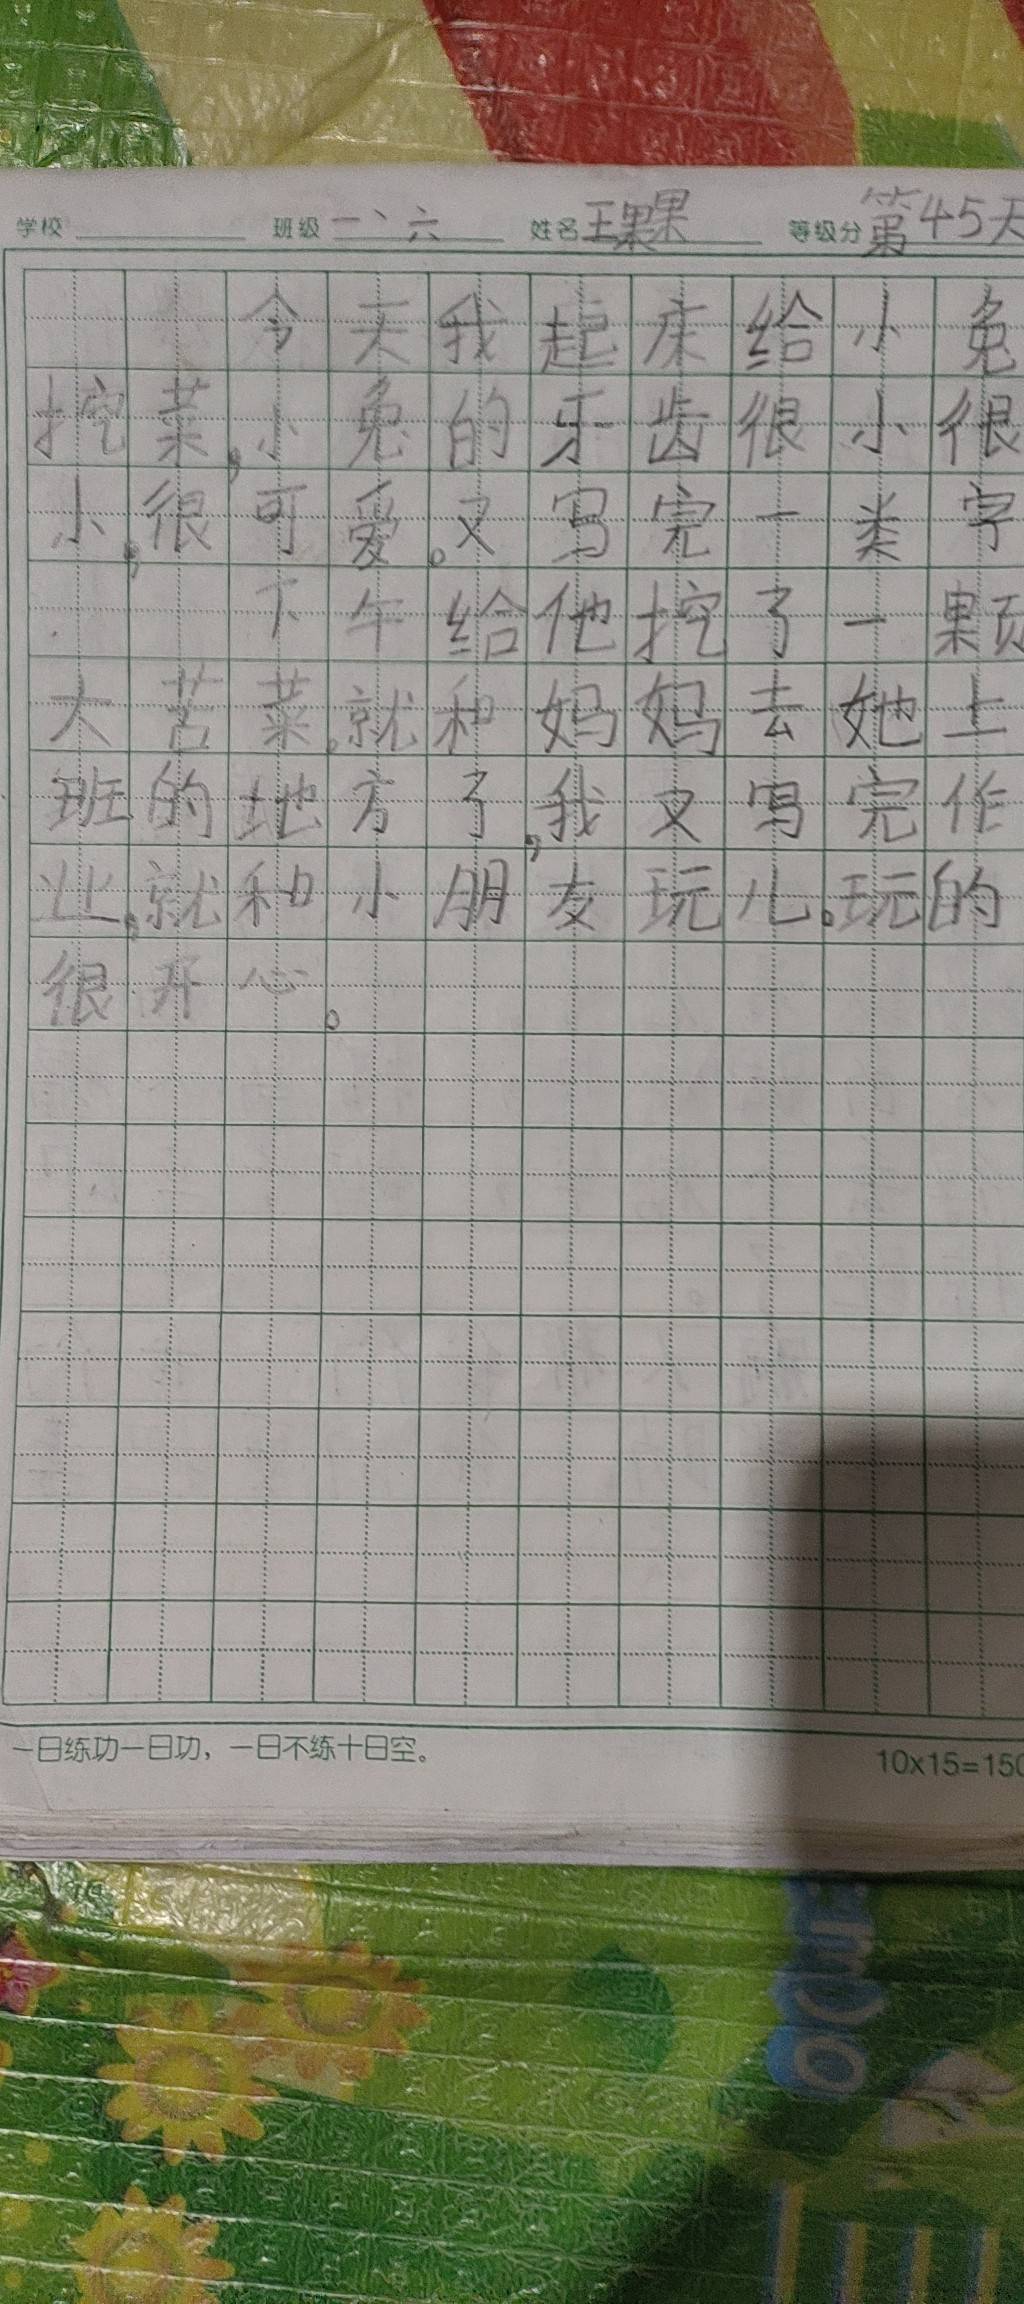 学校 班级 一、六 姓名 王果果 等级分 第45天
今天我起床给小兔
挖菜,小兔的牙齿很小很
小,很可爱。又写完一类字
下午给他挖了一颗
大苦菜。就和妈妈去她上
班的地方了,我又写完作
业,就和小朋友玩儿。玩的
很开心。
一日练功一日功，一日不练十日空。
10x15=150